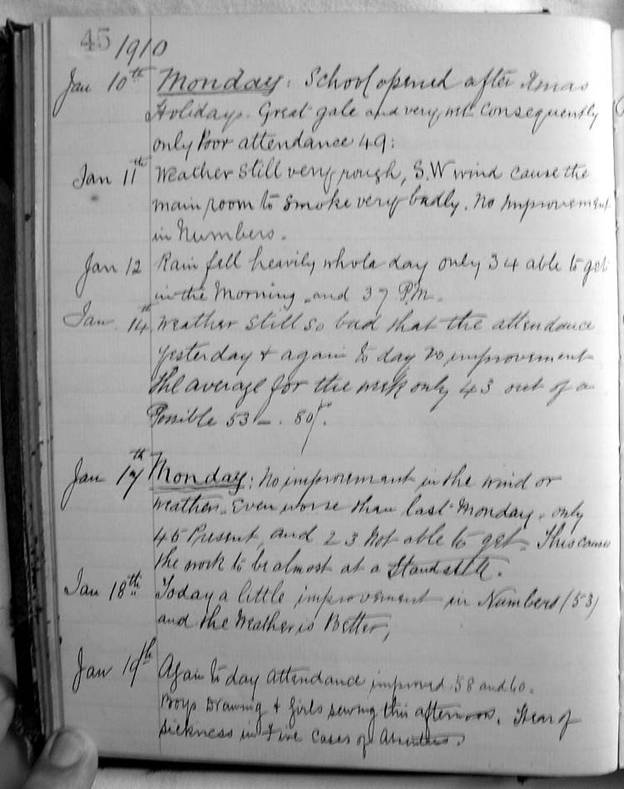 45 1910
Jan 10th Monday: School opened after Xmas
Holidays. Great gale and very wet consequently
only Poor attendance 49:
Jan 11th Weather still very rough, S.W wind cause the
main room to smoke very badly. No improvement
in Numbers.
Jan 12 Rain fell heavily whole day only 34 able to get
in the Morning, and 37 P.M.
Jan 14th Weather still so bad that the attendance
yesterday & again to day no improvement
the average for the week only 43 out of a
Possible 53 - .
Jan 17th Monday: No improvement in the wind or
weather. Even worse than last Monday, only
45 Present, and 23 Not able to get. This causes
the work to be almost at a Standstill.
Jan 18th Today a little improvement in Numbers (53)
and the Weather is Better,
Jan 19th Again to day Attendance improved 58 and 60.
Boys Drawing & Girls sewing this afternoon. Hear of
Sickness in Five Cases of Absentees.